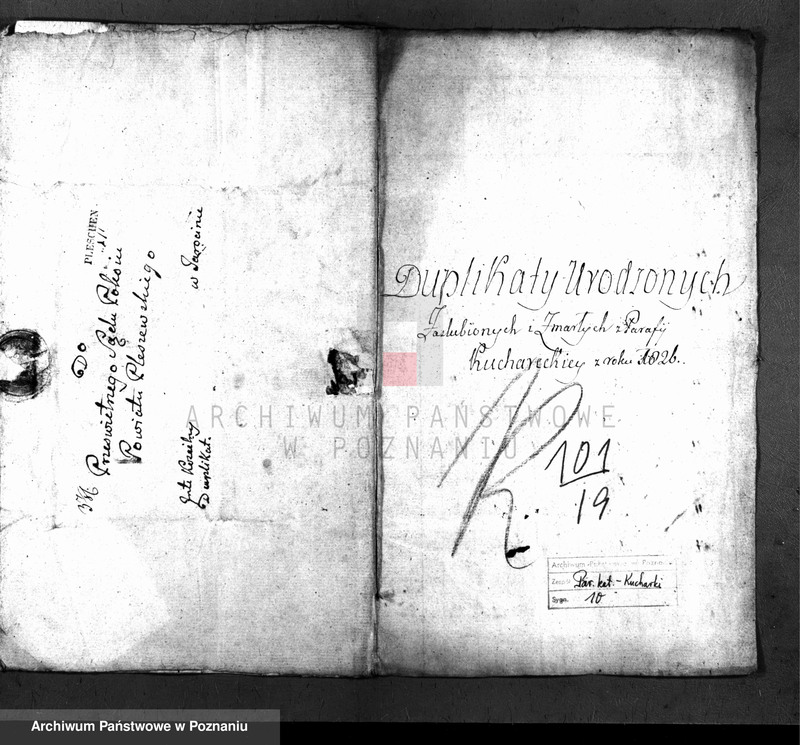 PLESCHEN
Do
Prześwietnego Sądu Pokoiu
Powiatu Pleszewskiego
w Jarocinie
Duplikat.
Duplikaty Urodzonych
Zaslubionych i Zmarłych z Parafij
Kuchareckiey z roku 1826.
101
19
Archiwum Państwowe w Poznaniu
Zespół Par. kat. - Kucharki
Sygn. 10
ARCHIWUM PAŃSTWOWE
W POZNANIU
Archiwum Państwowe w Poznaniu